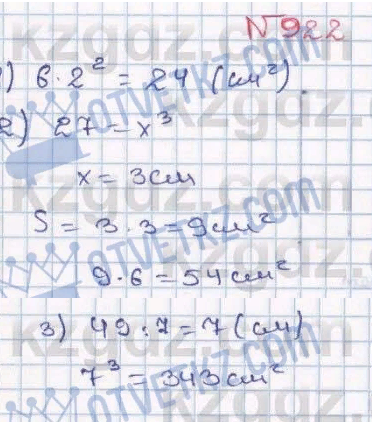 №922
1) 6·2² = 24 (см²)
2) 27 = x³
x = 3см
S = 3·3 = 9см²
9·6 = 54см²
3) 49:7 = 7 (см)
7³ = 343см²
kzgdz.com
OTVETKZ.COM